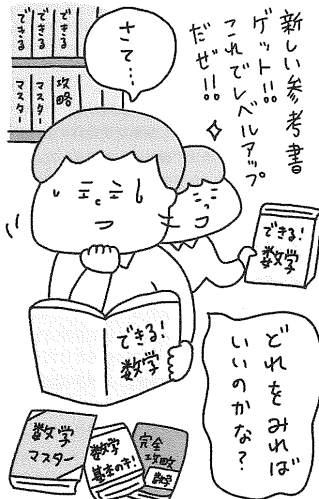 新しい参考書
ゲット!!
これでレベルアップ
だぜ!!
さて…
できる
できる
できる
マスター
マスター
攻略
できる!
数学
どれをみれば
いいのかな?
できる!
数学
数学
マスター
数学
基本のき!
完全
攻略
数学